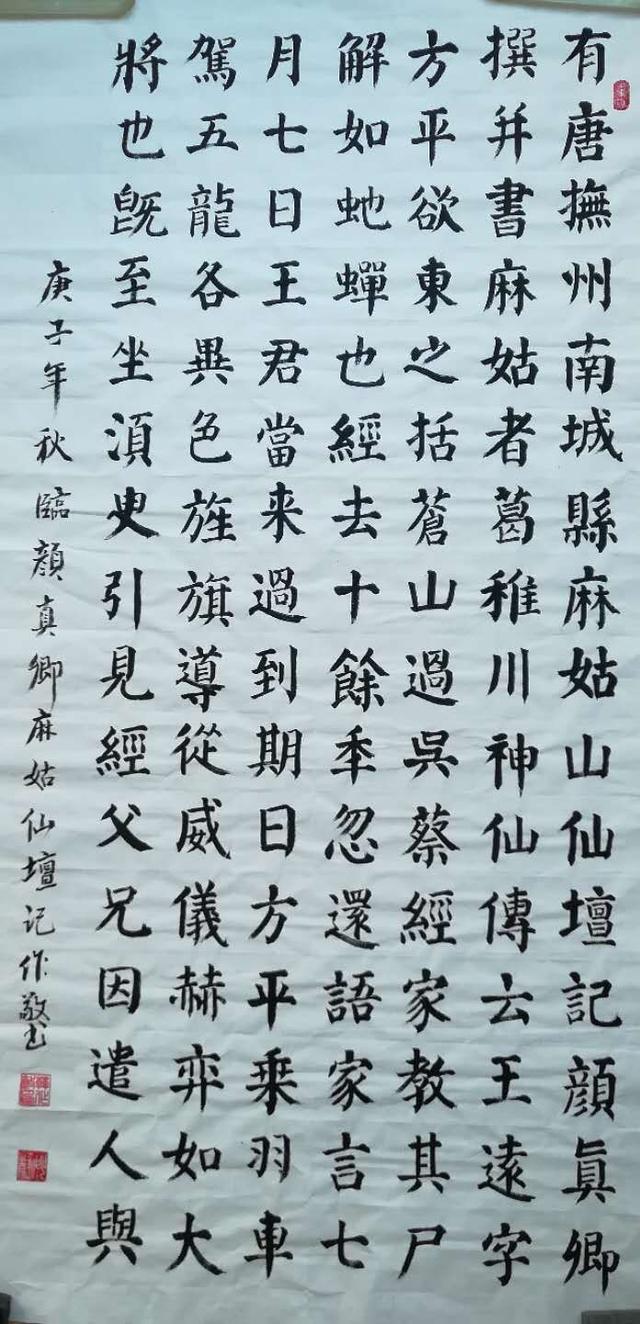 有唐撫州南城縣麻姑山仙壇記顏真卿
撰并書麻姑者葛稚川神仙傳云王遠字
方平欲東之括蒼山過吳蔡經家教其尸
解如虵蟬也經去十餘秊忽還語家言七
月七日王君當来過到期日方平乗羽車
駕五龍各異色旌旗導從威儀赫弈如大
將也旣至坐湏臾引見經父兄因遣人與
庚子年秋臨顔真卿麻姑仙壇记作敬书